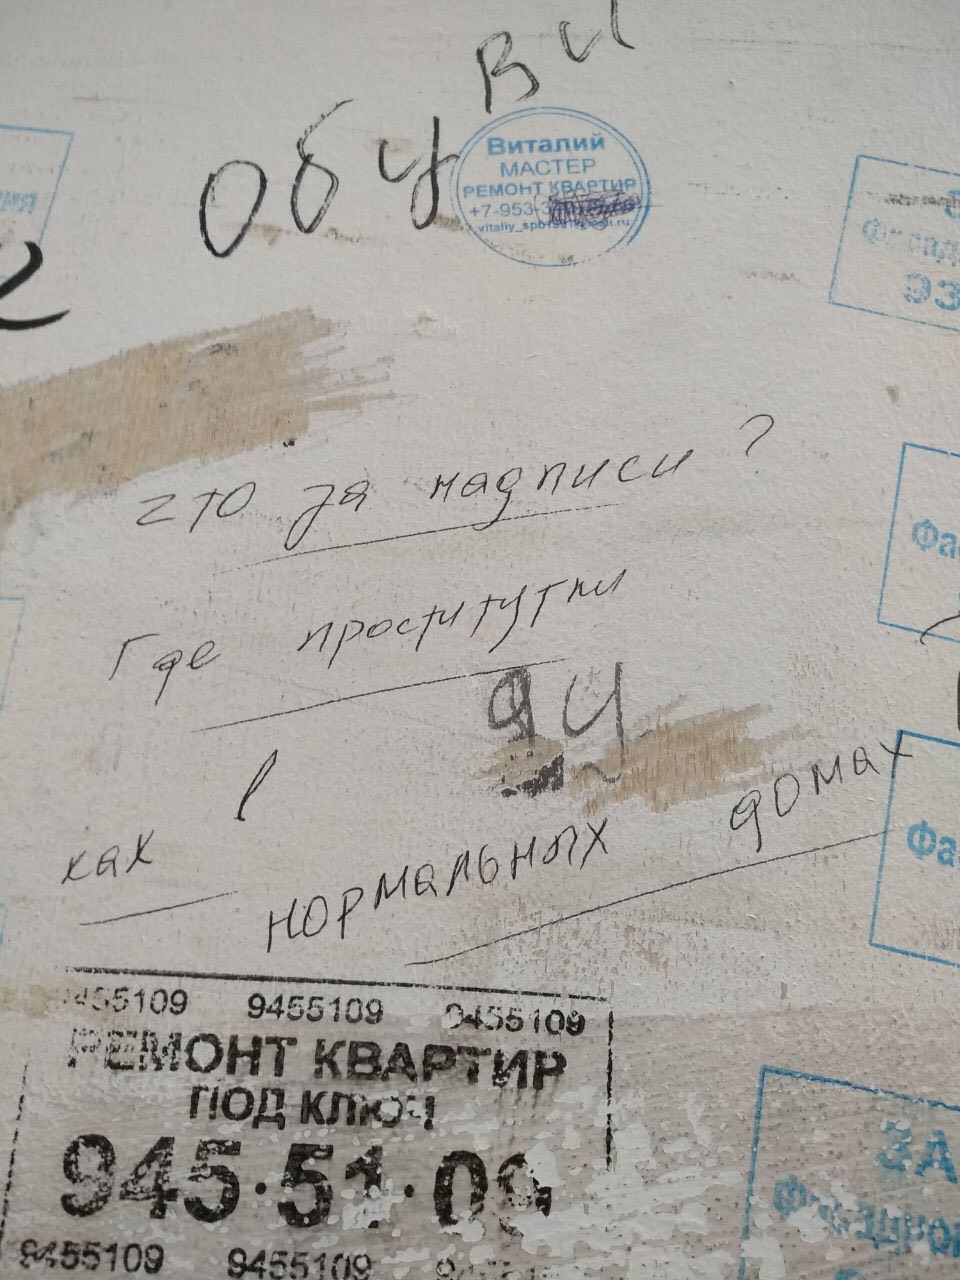 обуви
Виталий
МАСТЕР
РЕМОНТ КВАРТИР
+7-953-3
ЭЗ
что за надписи?
Где проститутки
как в
нормальных домах
Фа
Фа
9455109 9455109 9455109
РЕМОНТ КВАРТИР
ПОД КЛЮЧ
945·51·09
9455109 9455109
ЗА